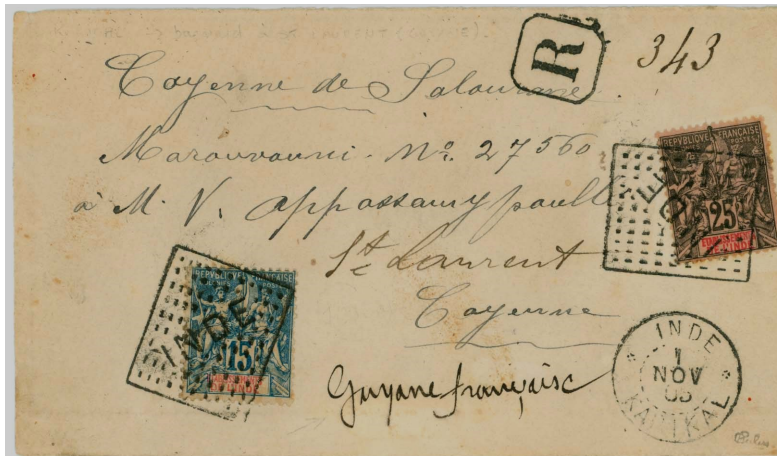 R
343
Cayenne de Salourane
Marouvouni. No. 27560
à M. V. Appassamy poulle
St Laurent
Cayenne
Guyane française
REPUBLIQUE FRANÇAISE
POSTES
25
REPUBLIQUE FRANÇAISE
COLONIES POSTES
15
INDE
INDE
1
NOV
KARIKAL